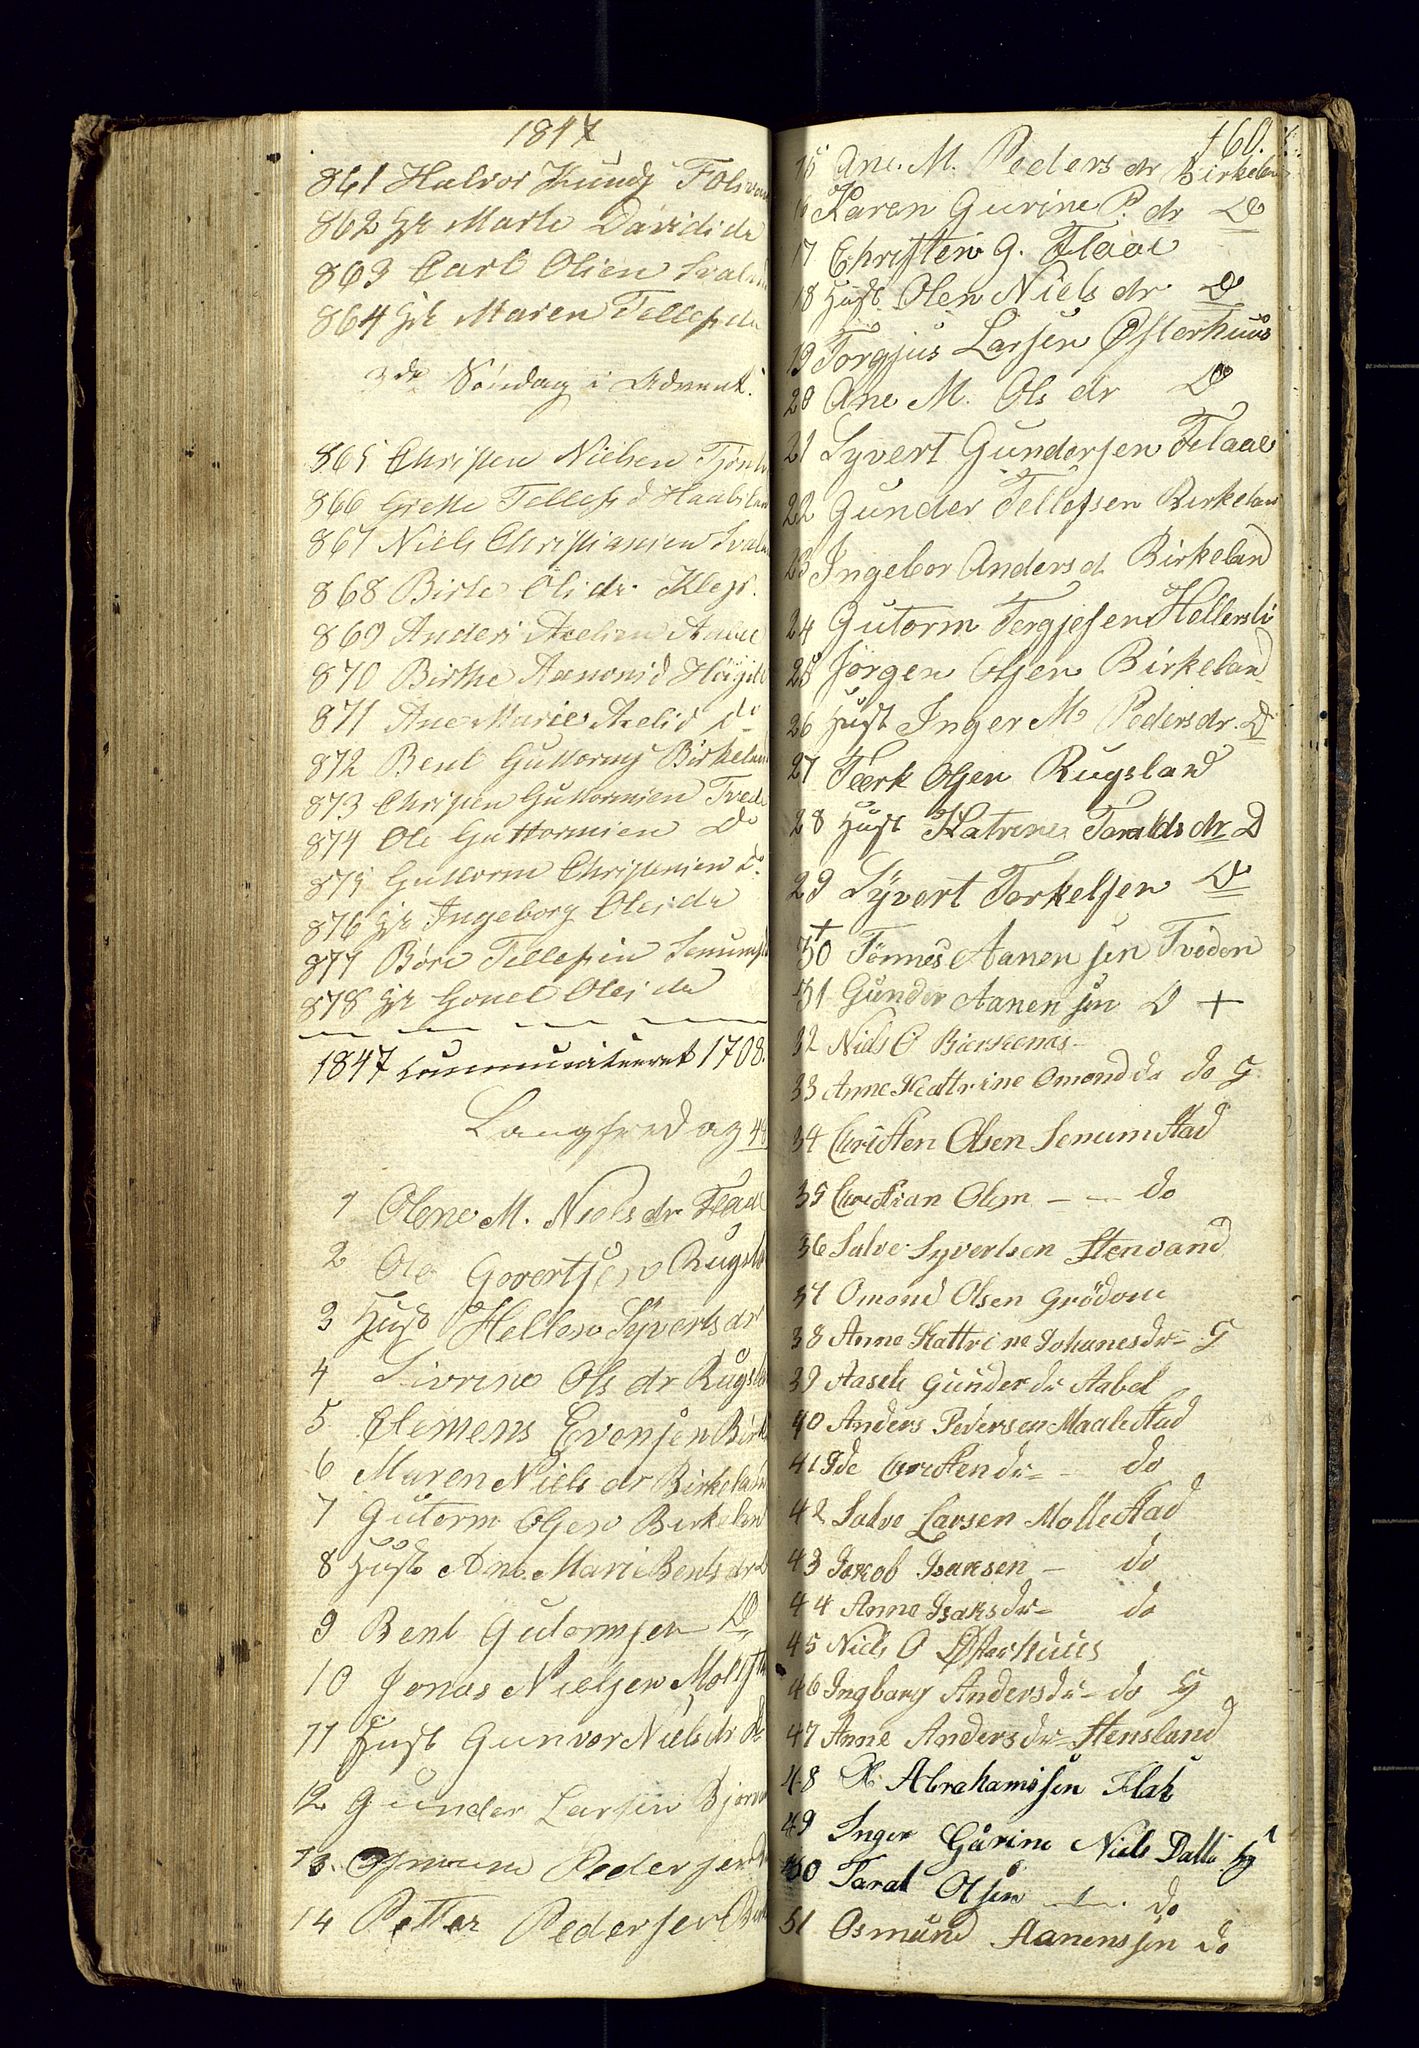 1847
861 Halvor Knuds Folsva
862 Hr Marte Davidsdr
863 Carl Olsen Svala
864 Hr Maren Tellefsdr
3de Söndag i Advent.
865 Christen Nielsen Tjön
866 Grette Tellefsd Haabslan
867 Niels Christiansen Svala
868 Birte Olsdr Kleps
869 Anders Axelsen
870 Birthe Aanonsd
871 Ane Marie Axelsd do
872 Bent Guttorms Birkelan
873 Christen Guttormsen Tvede
874 Ole Guttormsen Do
875 Guttorm Christensen do
876 Hr Ingeborg Olesdr
877 Böre Tellefsen Senums
878 Hr Gonel Olesdr
1847 Communiceret 1708.
Langfredag 48
1 Olene M. Niels dr Flaae
2 Ole Govertsen Rugsla
3 Hust Hellene Syverts dr
4 Sivrine Ols dr Rugsla
5 Clemens Evensen Birk
6 Maren Niels dr Birkelan
7 Gutorm Olsen Birkelan
8 Hust Ane Marie Bents dr D
9 Bent Gutormsen D
10 Jonas Nielsen Molles
11 Hust Gunvor Niels dr
12 Gunder Larsen Björn
13. Pedersen
14 Petter Pedersen Birk
160.
15 Ane. M. Peders dr Birkelan
16 Karen Gurine P. dr D
17 Christen G. Flaae
18 Hust. Olen Niels dr. D
19 Torgjus Larsen Østerhuus
20 Ane M. Ols dr D
21 Syvert Gundersen Flaae
22 Gunder Tellefsen Birkelan
23 Ingebor Anders d. Birkeland
24 Gutorm Tergjesen Hellersli
25 Jörgen Olsen Birkeland
26 Hust Inger M Peders dr. D
27 Terk Olsen Rugsland
28 Hust Katrine Taralds dr D
29 Syvert Torkelsen D
+
30 Tönnes Aanensen Tveden
31 Gunder Aanensen D +
32 Niels O Birkenes
33 Anne Kattrine Omondd. do G
34 Christen Olsen Senumstad
35 Christian Olsen - - do
36 Salve Syvertsen Stenvand
37 Omond Olsen Grödum
38 Anne Kattrine Johanesdr G
39 Aasele Gunderdr Aabel
40 Anders Pedersen Maalestad
41 Ide Christendr - do
42 Salve Larsen Mollestad
43 Jakob Isaksen - do
44 Anne Isaksdr - do
45 Niels O Østerhuus
46 Ingbarg Andersdr - do G
47 Anne Andersdr Stensland
48 Abrahamssen Flak
49 Inger Gurine Niels Datt
50 Taral Olsen - - do
51 Osmund Aanenssen do